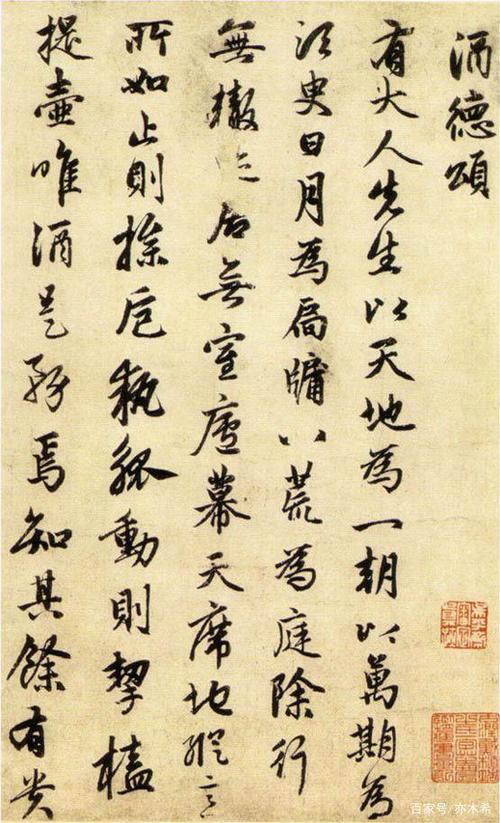 酒德頌
有大人先生以天地為一朝以萬期為
須臾日月為扃牖八荒為庭除行
無轍迹居無室廬幕天席地縱意
所如止則操卮執觚動則挈榼
提壺唯酒是務焉知其餘有貴
百家号/亦木希